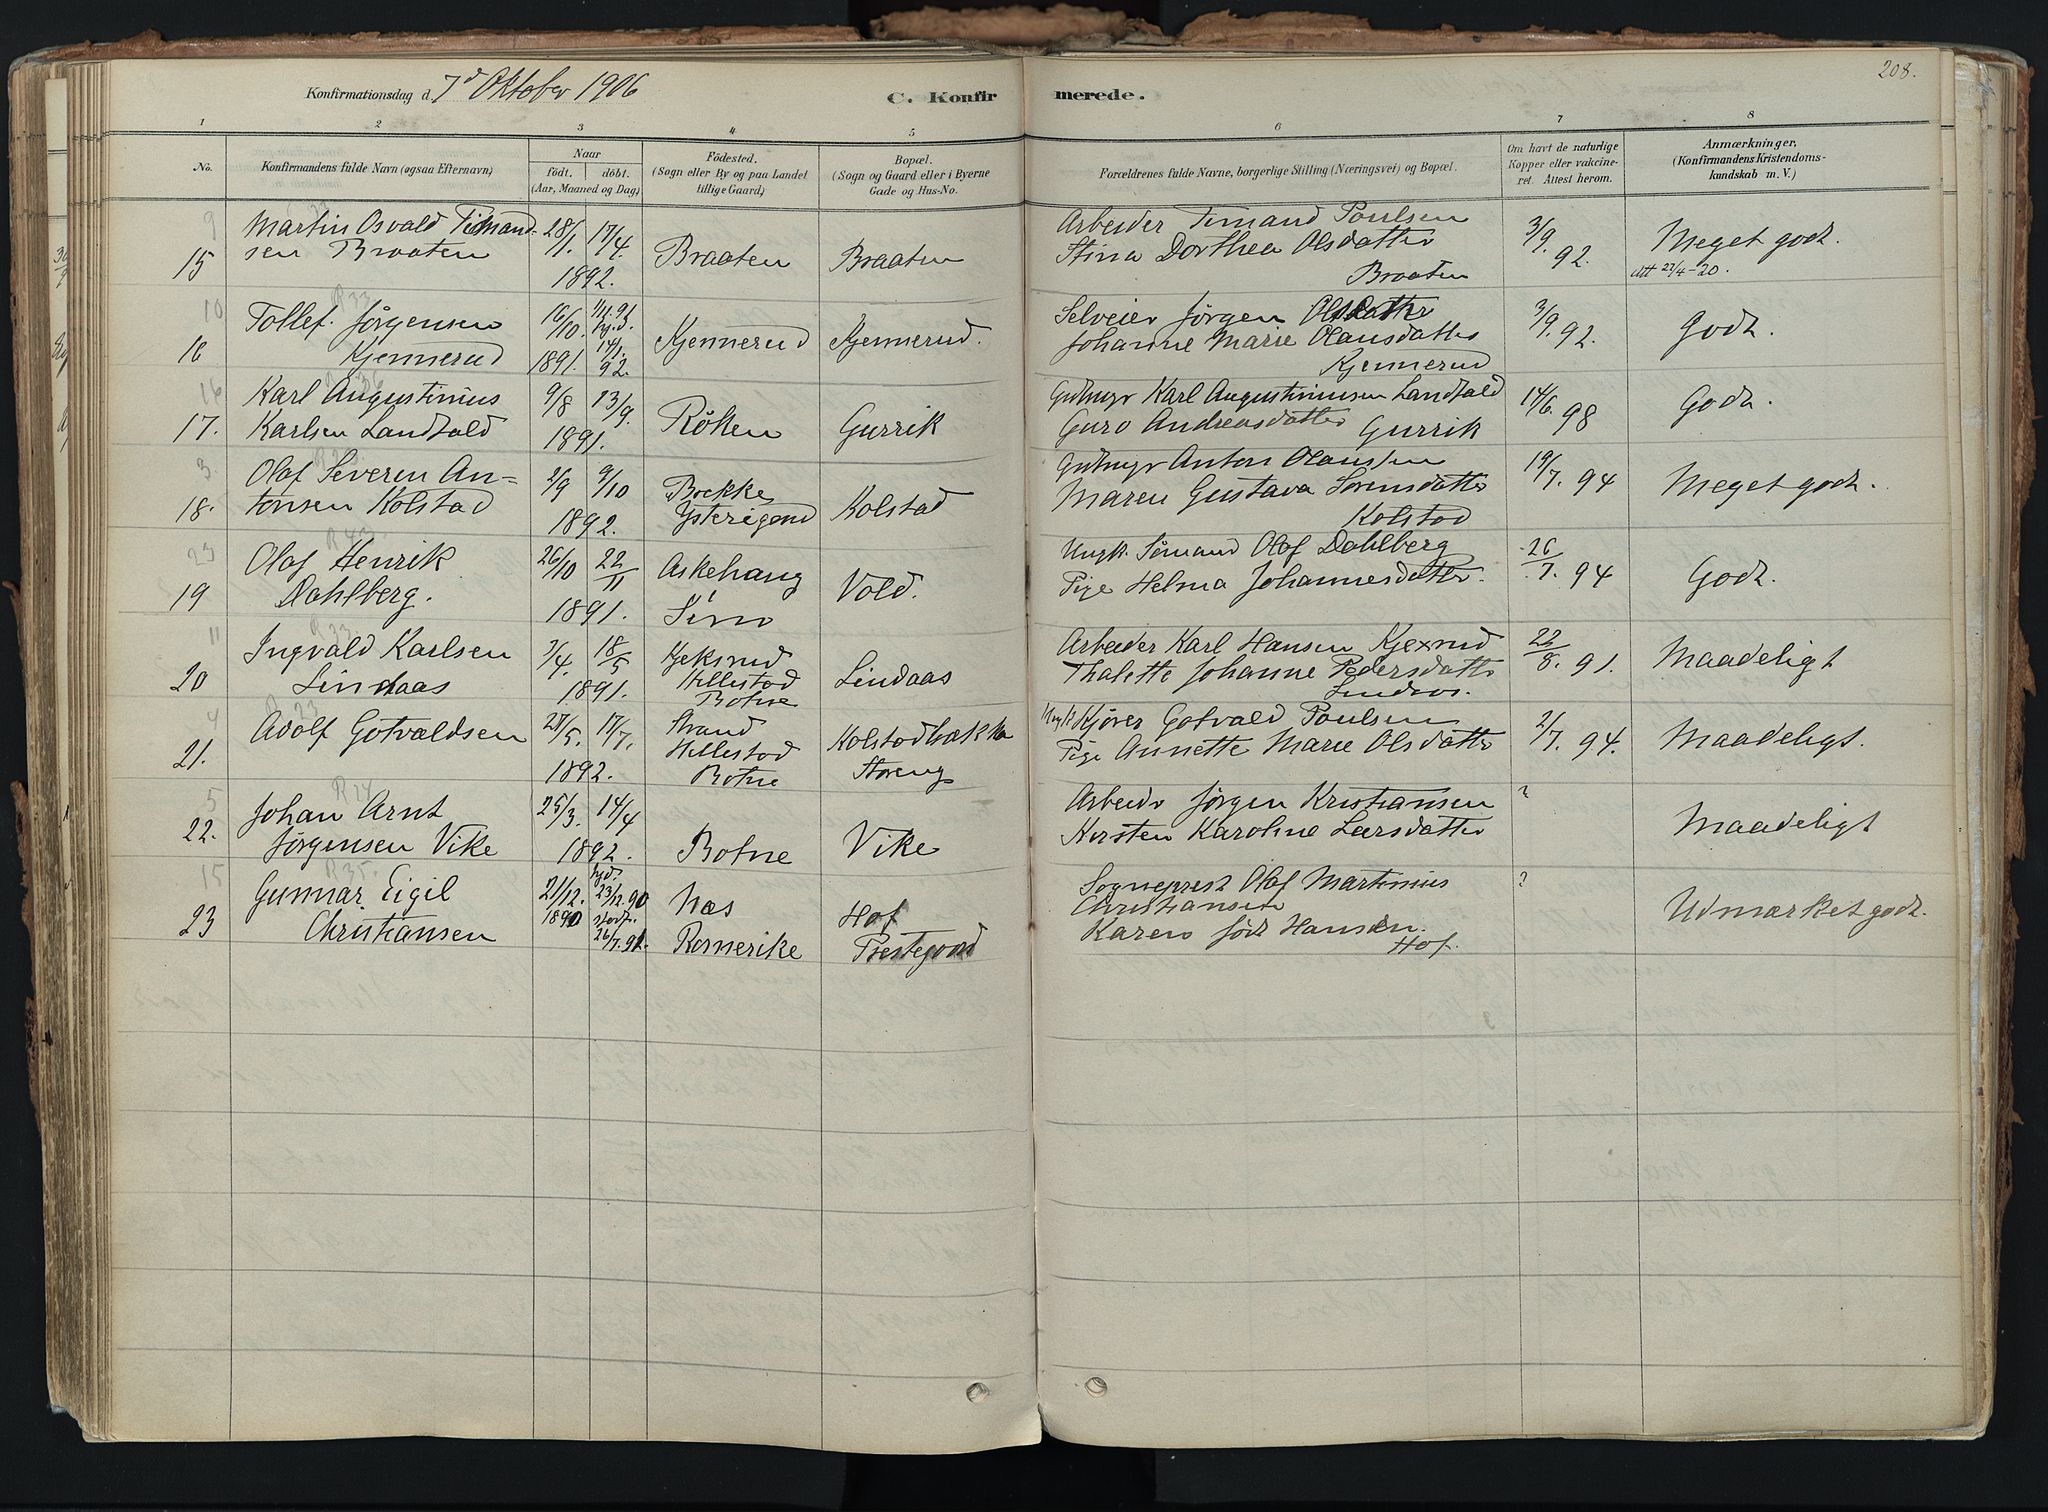 208.
Konfirmationsdag d. 7d Oktober 1906
C. Konfirmerede.
1 2 3 4 5 6 7 8
No.
Konfirmandens fulde Navn (ogsaa Efternavn)
Naar
födt. döbt.
(Aar, Maaned og Dag)
Födested.
(Sogn eller By og paa Landet
tillige Gaard)
Bopæl.
(Sogn og Gaard eller i Byerne
Gade og Hus-No.
Forældrenes fulde Navne, borgerlige Stilling (Næringsvei) og Bopæl.
Om havt de naturlige
Kopper eller vakcine-
ret. Attest herom.
Anmærkninger.
(Konfirmandens Kristendoms-
kundskab m. V.)
9
Martin Osvald Timand- 28/1. 17/4. Arbeider Timand Poulsen 3/9.
15 sen Braaten Braaten Braaten Stina Dorthea Olsdatter 92. Meget godt.
1892. Braaten att 27/4-20.
10 R33
Tollef Jørgensen 16/10. 1/11.91 hj.d. Selveier Jørgen Olsen 3/9.
16 Kjennerud 1891. 14/1. 92. Kjennerud Kjennerud. Johanne Marie Olausdatter 92. Godt.
Kjennerud
16
Karl Augustinius 9/8 13/9. Gdbrugr Karl Augustiniussen Landfald 14/6. 98 Godt.
17. Karlsen Landfald 1891. Röken Gurrik Guro Andreasdatter Gurrik
3.
Olaf Severin An- 2/9 9/10 Bække Gdbrugr Anton Olaussen 19/7. 94
18. tonsen Kolstad 1892. Kolstad Maren Gustava Sørensdatter Meget godt.
Kolstad
23
Olaf Henrik 26/10 22/11 Askehaug Ungk. Sømand Olaf Dahlberg 26/7. 94
19 Dahlberg. 1891. Vold. Pige Helma Johannesdatter. Godt.
11 R33
Ingvald Karlsen 3/4. 18/5 Kjeksrud Arbeider Karl Hansen Kjexrud 22/8. 91.
20 Lindaas 1891. Hillestad Botne Lindaas Thalette Johanne Pedersdatter Maadeligt
Lindaas.
4
Adolf Gotvaldsen 28/5. 17/7. Strand Ungk Kjører Gotvald Poulsen 2/7. 94.
21. 1892. Hillestad Botne Kolstadbakken Pige Annette Marie Olsdatter Maadeligt.
5 R24
Johan Arnt 25/3. 14/4 Arbeider Jørgen Kristiansen ?
22. Jørgensen Vike 1892. Botne Vike Kirsten Karoline Larsdatter Maadeligt
15 R35.
Gunnar Eigil 21/12. 1890 hjd. 23/12.90 Næs Hof Sogneprest Olaf Martinius ?
23 Christiansen stadf. 26/7.91. Romerike Prestegaard Christiansen Udmærket godt.
Karen født Hansen.
Hof.